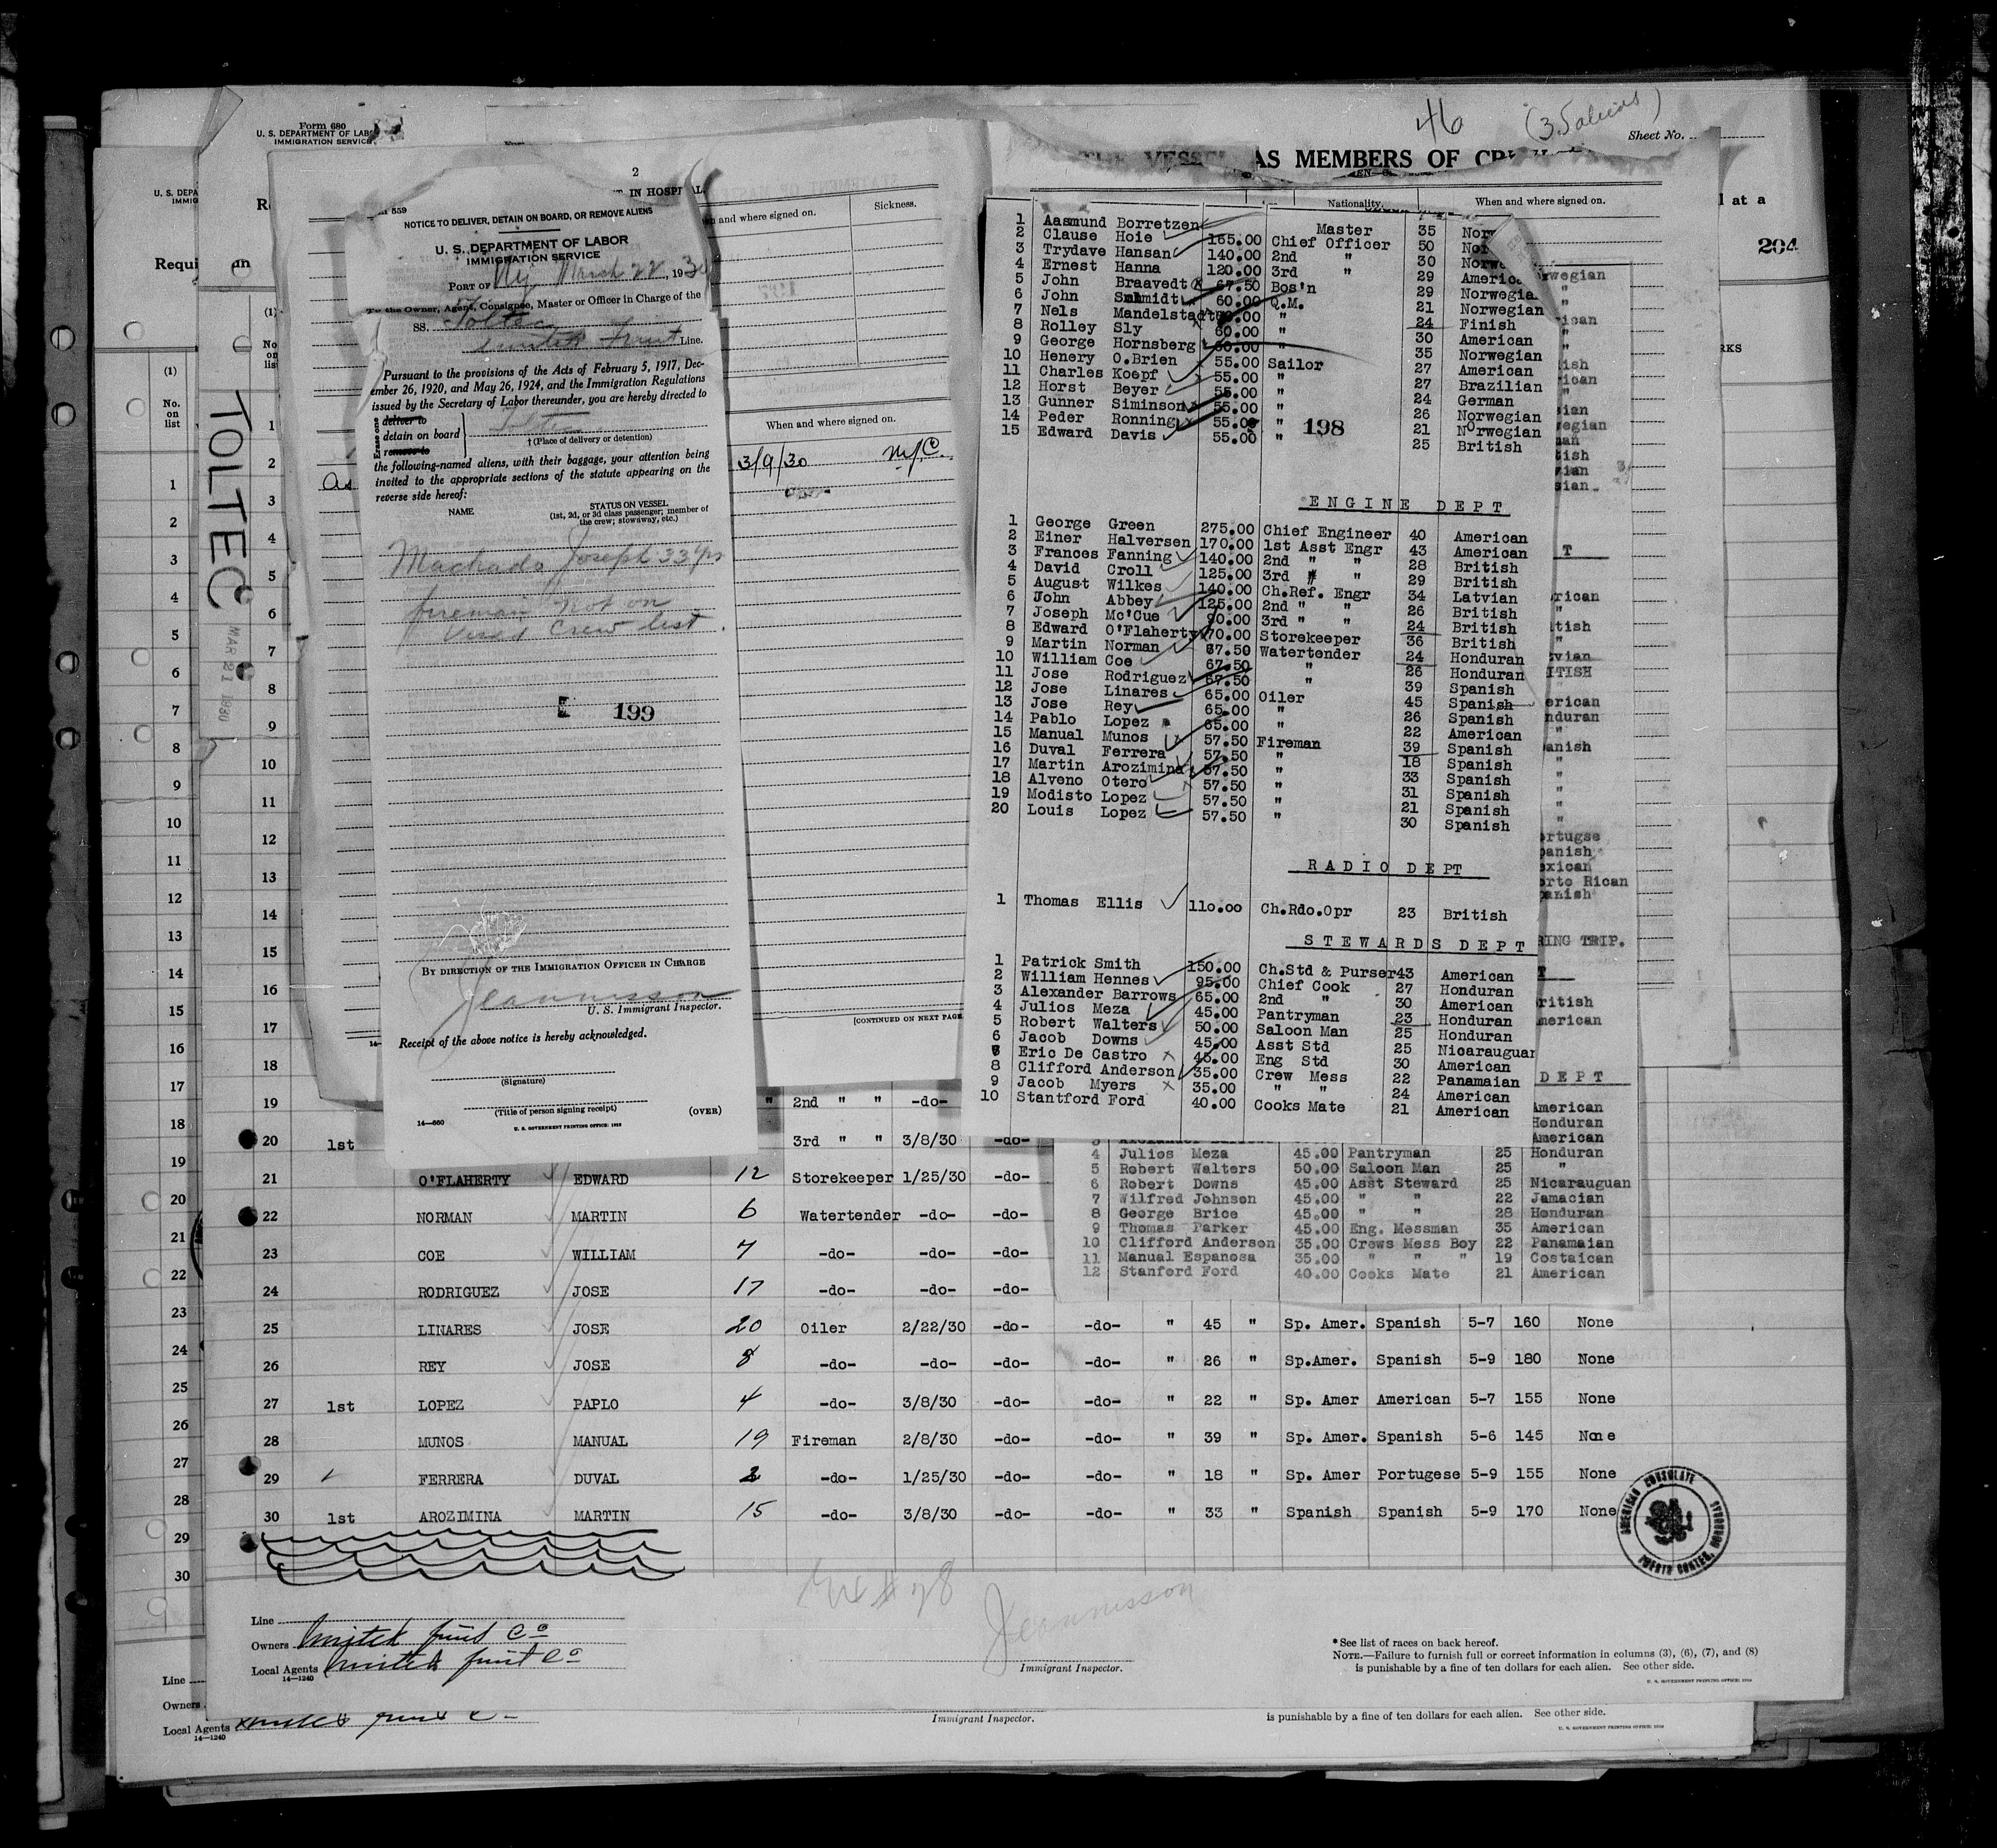 Form 680
U. S. DEPARTMENT OF LAB
IMMIGRATION SERVICE
46
(3.
Sheet No.
AS MEMBERS OF
U. S. DEPA
IMMIG
Requi
(1)
No.
on
list
TOLTEC
MAR 21 1930
l at a
204
RKS
2
IN HOSPITAL
and where signed on.
Sickness.
When and where signed on.
3/9/30
[CONTINUED ON NEXT PAGE
559
NOTICE TO DELIVER, DETAIN ON BOARD, OR REMOVE ALIENS
U. S. DEPARTMENT OF LABOR
IMMIGRATION SERVICE
PORT OF Ny March 22, 1930
To the Owner, Agent, Consignee, Master or Officer in Charge of the
SS. Toltec
United Fruit Line.
Pursuant to the provisions of the Acts of February 5, 1917, Dec-
ember 26, 1920, and May 26, 1924, and the Immigration Regulations
issued by the Secretary of Labor thereunder, you are hereby directed to
Erase one
deliver to
detain on board
remove to
Toltec
†(Place of delivery or detention)
the following-named aliens, with their baggage, your attention being
invited to the appropriate sections of the statute appearing on the
reverse side hereof:
NAME
STATUS ON VESSEL
(1st, 2d, or 3d class passenger; member of
the crew; stowaway, etc.)
Machado Joseph 33 yrs
fireman not on
visaed crew list.
199
BY DIRECTION OF THE IMMIGRATION OFFICER IN CHARGE
Jeannisson
U. S. Immigrant Inspector.
Receipt of the above notice is hereby acknowledged.
(Signature)
(Title of person signing receipt)
(OVER)
14—660
U. S. GOVERNMENT PRINTING OFFICE: 1929
Nationality.
When and where signed on.
1 Aasmund Borretzen Master 35
2 Clause Hoie 165.00 Chief Officer 50
3 Trydave Hansan 140.00 2nd " 30
4 Ernest Hanna 120.00 3rd " 29 America
5 John Braavedt 67.50 Bos'n 29 Norwegian
6 John Schmidt 60.00 Q.M. 21 Norwegian
7 Nels Mandelstadt 60.00 " 24 Finish
8 Rolley Sly 60.00 " 30 American
9 George Hornsberg 60.00 " 35 Norwegian
10 Henery O.Brien 55.00 Sailor 27 American
11 Charles Koepf 55.00 " 27 Brazilian
12 Horst Beyer 55.00 " 24 German
13 Gunner Siminson 55.00 " 26 Norwegian
14 Peder Ronning 55.00 " 198 21 Norwegian
15 Edward Davis 55.00 " 25 British
ENGINE DEPT
1 George Green 275.00 Chief Engineer 40 American
2 Einer Halversen 170.00 1st Asst Engr 43 American
3 Frances Fanning 140.00 2nd " " 28 British
4 David Croll 125.00 3rd " " 29 British
5 August Wilkes 140.00 Ch.Ref. Engr 34 Latvian
6 John Abbey 125.00 2nd " " 26 British
7 Joseph Mc'Cue 90.00 3rd " " 24 British
8 Edward O'Flaherty 70.00 Storekeeper 36 British
9 Martin Norman 67.50 Watertender 24 Honduran
10 William Coe 67.50 " 26 Honduran
11 Jose Rodriguez 67.50 " 39 Spanish
12 Jose Linares 65.00 Oiler 45 Spanish
13 Jose Rey 65.00 " 26 Spanish
14 Pablo Lopez 65.00 " 22 American
15 Manual Munos 57.50 Fireman 39 Spanish
16 Duval Ferrera 57.50 " 18 Spanish
17 Martin Arozimina 57.50 " 33 Spanish
18 Alveno Otero 57.50 " 31 Spanish
19 Modisto Lopez 57.50 " 21 Spanish
20 Louis Lopez 57.50 " 30 Spanish
RADIO DEPT
1 Thomas Ellis 110.00 Ch.Rdo.Opr 23 British
STEWARDS DEPT
1 Patrick Smith 150.00 Ch.Std & Purser 43 American
2 William Hennes 95.00 Chief Cook 27 Honduran
3 Alexander Barrows 65.00 2nd " 30 American
4 Julios Meza 45.00 Pantryman 23 Honduran
5 Robert Walters 50.00 Saloon Man 25 Honduran
6 Jacob Downs 45.00 Asst Std 25 Nicarauguan
7 Eric De Castro 45.00 Eng Std 30 American
8 Clifford Anderson 35.00 Crew Mess 22 Panamaian
9 Jacob Myers 35.00 " " 24 American
10 Stantford Ford 40.00 Cooks Mate 21 American
RING TRIP.
DEPT
American
Honduran
American
4 Julios Meza 45.00 Pantryman 25 Honduran
5 Robert Walters 50.00 Saloon Man 25 "
6 Robert Downs 45.00 Asst Steward 25 Nicarauguan
7 Wilfred Johnson 45.00 " " 22 Jamacian
8 George Brice 45.00 " " 28 Honduran
9 Thomas Parker 45.00 Eng. Messman 35 American
10 Clifford Anderson 35.00 Crews Mess Boy 22 Panamaian
11 Manual Espanosa 35.00 " " " 19 Costaican
12 Stanford Ford 40.00 Cooks Mate 21 American
19 " 2nd " " -do-
20 1st 3rd " " 3/8/30 -do-
21 O'FLAHERTY EDWARD 12 Storekeeper 1/25/30 -do-
22 NORMAN MARTIN 6 Watertender -do- -do-
23 COE WILLIAM 7 -do- -do- -do-
24 RODRIGUEZ JOSE 17 -do- -do- -do-
25 LINARES JOSE 20 Oiler 2/22/30 -do- -do- " 45 " Sp. Amer. Spanish 5-7 160 None
26 REY JOSE 8 -do- -do- -do- -do- " 26 " Sp.Amer. Spanish 5-9 180 None
27 1st LOPEZ PAPLO 4 -do- 3/8/30 -do- -do- " 22 " Sp. Amer American 5-7 155 None
28 MUNOS MANUAL 19 Fireman 2/8/30 -do- -do- " 39 " Sp. Amer. Spanish 5-6 145 None
29 FERRERA DUVAL 2 -do- 1/25/30 -do- -do- " 18 " Sp. Amer Portugese 5-9 155 None
30 1st AROZIMINA MARTIN 15 -do- 3/8/30 -do- -do- " 33 " Spanish Spanish 5-9 170 None
AMERICAN CONSULATE
PUERTO CORTES, HONDURAS
Line
Owners United Fruit Co
Local Agents United Fruit Co
14—1240
Jeannisson
Immigrant Inspector.
*See list of races on back hereof.
NOTE.—Failure to furnish full or correct information in columns (3), (6), (7), and (8)
is punishable by a fine of ten dollars for each alien. See other side.
U. S. GOVERNMENT PRINTING OFFICE: 1929
Line
Owners
Local Agents United Fruit Co
14—1240
Immigrant Inspector.
is punishable by a fine of ten dollars for each alien. See other side.
U. S. GOVERNMENT PRINTING OFFICE: 1929